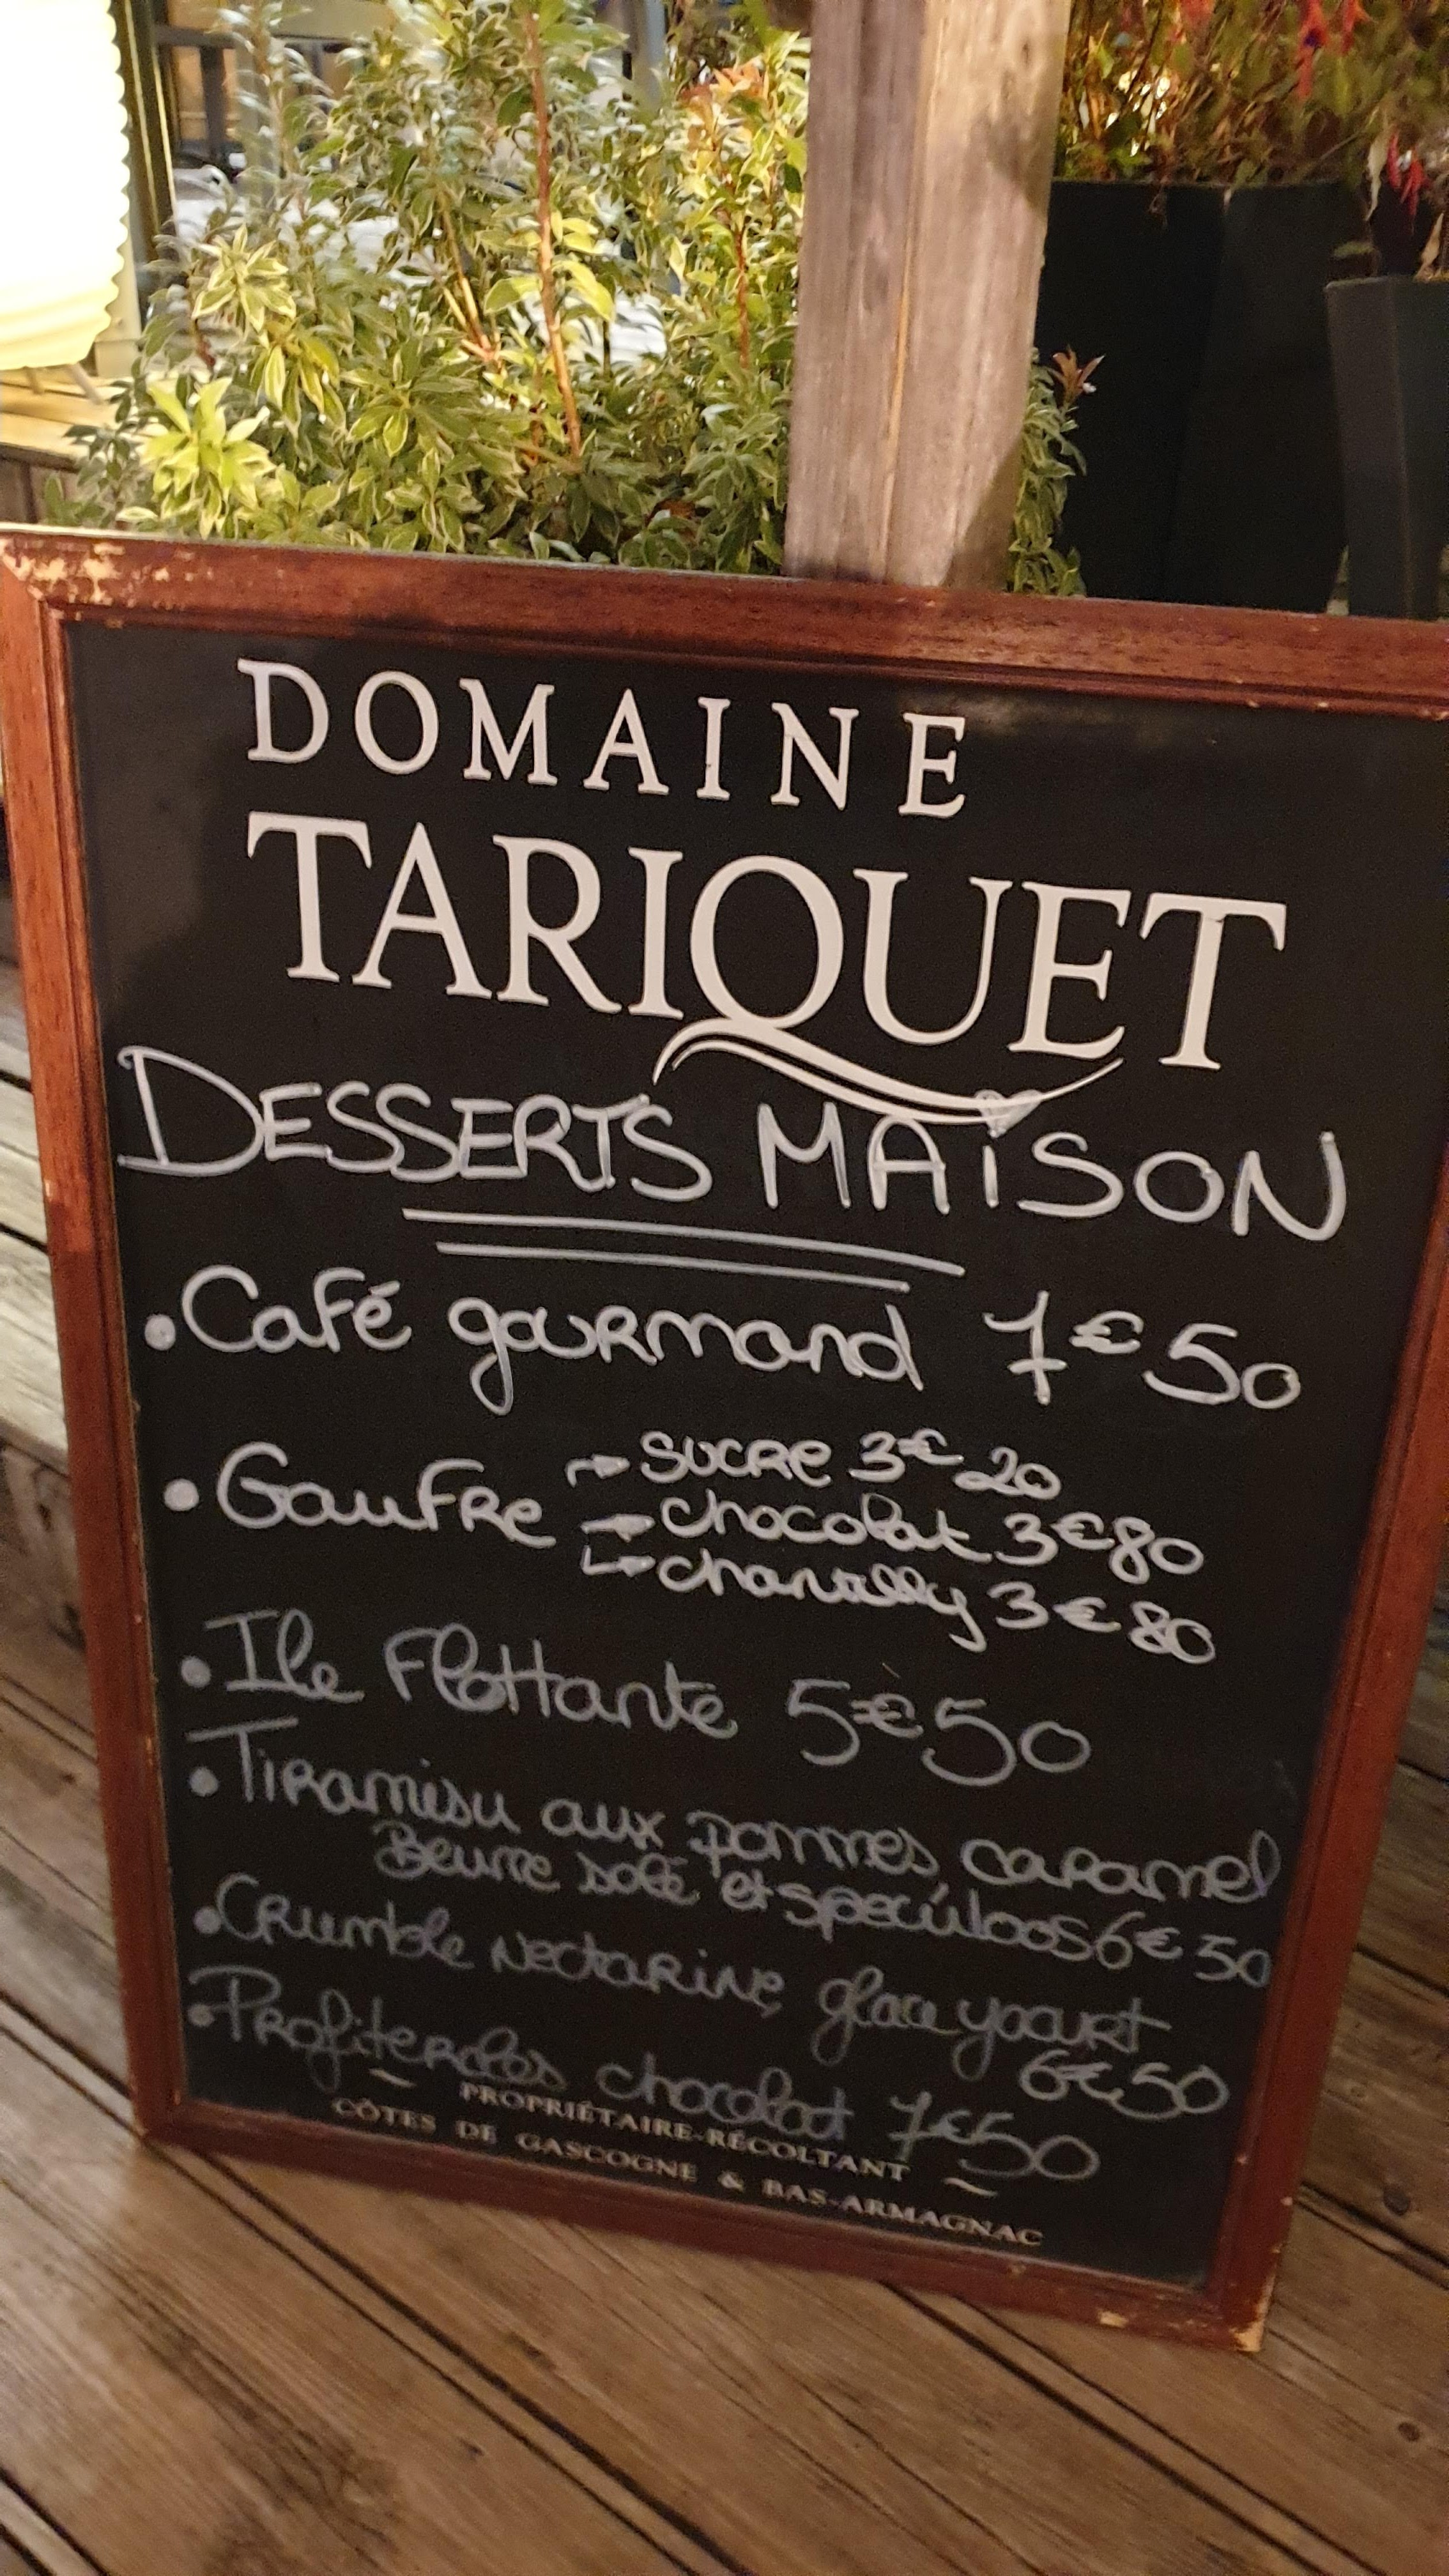 DOMAINE
TARIQUET
DESSERTS MAISON
• Café gourmand 7€50
• Gaufre → sucre 3€20
→ chocolat 3€80
→ chantilly 3€80
• Ile Flottante 5€50
• Tiramisu aux pommes caramel
Beurre salé et spéculoos 6€50
• Crumble nectarine, glace yaourt
6€50
• Profiteroles chocolat 7€50
~ PROPRIÉTAIRE-RÉCOLTANT ~
CÔTES DE GASCOGNE & BAS-ARMAGNAC